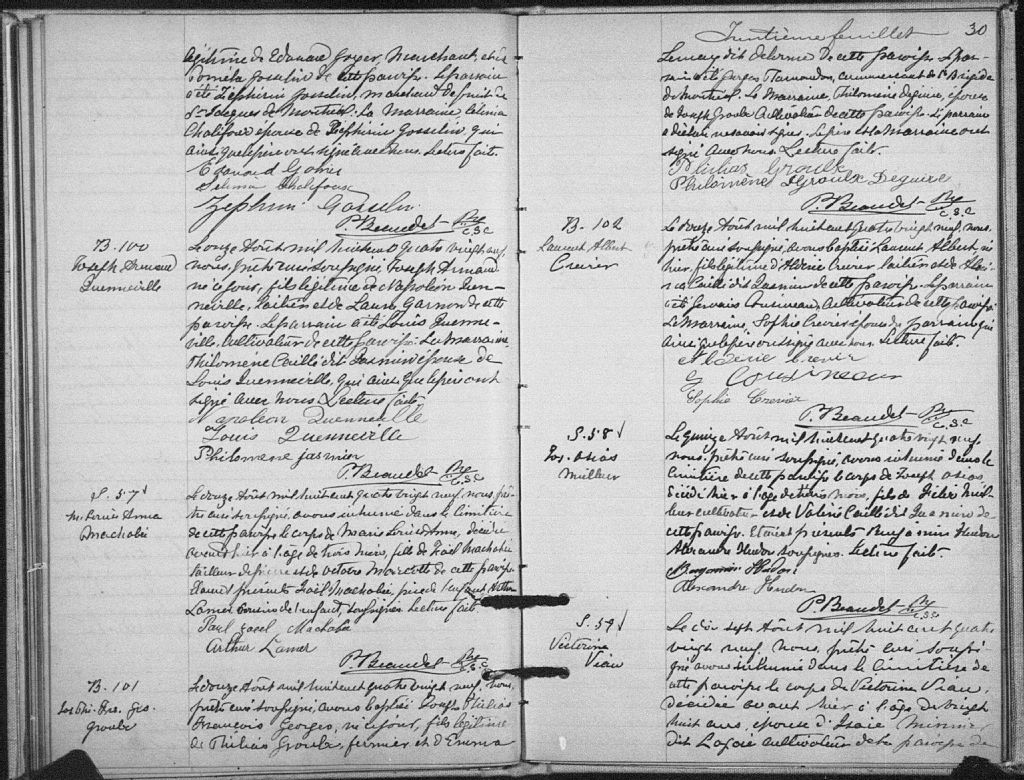 légitime de Edouard Goyer, Marchand, et de
Roméla Gosselin de cette paroisse. Le parrain
a été Zéphirin Gosselin, marchand de fruit de
St Jacques de Montréal. La Marraine
Chalifoux épouse de Zéphirin Gosselin, qui
ainsi que le père ont signé avec nous. Lecture faite.
Edouard Goyer
Chalifoux
Zephirin Gosselin
P. Beaudet Ptre
C.S.C
B. 100
Joseph Armand
Quenneville
Le onze Août mil huit cent quatre vingt neuf,
nous, prêtre curé soussigné, Joseph Armand
né ce jour, fils légitime de Napoléon Quen-
neville, laitier et de Laura Garnon de cette
paroisse. Le parrain a été Louis Quenne-
ville, cultivateur de cette paroisse. La Marraine
Philomène Caillé dit Jasmin épouse de
Louis Quenneville, qui ainsi que le père ont
signé avec nous. Lecture faite
Napoléon Quenneville
Louis Quenneville
Philomene jasmin
P. Beaudet Ptre
C.S.C
S. 57
M. Louise Anna
Machabée
Le douze Août mil huit cent quatre vingt neuf, nous prê-
tre curé soussigné, avons inhumé dans le cimetière
de cette paroisse le corps de Marie Louise Anna, décédée
avant hier à l'age de trois mois, fille de Joël Machabée
tailleur de pierre et de Octavie Marcotte de cette paroisse
étaient présents Joël Machabée, père de l'enfant Arthur
Lamer cousin de l'enfant, soussignés Lecture faite
Paul Joael Machabée
Arthur Lamer
P. Beaudet Ptre
C.S.C
B. 101
Jos. Phi. Frs. Geo.
Groulx
Le douze Août mil huit cent quatre vingt neuf, nous,
prêtre curé soussigné, avons baptisé Joseph Philias
François Georges, né ce jour, fils légitime
de Philias Groulx, fermier et d'Emma
Trentième feuillet 30
Lemay dit Delorme de cette paroisse. Le par-
rain a été Georges commerçant de Ste Brigide
de Montréal. La Marraine, Philomène Deguire, épouse
de Joseph Groulx cultivateur de cette paroisse. Le parrain
a déclaré ne savoir signer. Le père et la Marraine ont
signé avec nous. Lecture faite.
Philias Groulx
Philomène Groulx Deguire
P. Beaudet Ptre
C.S.C
B. 102
Laurent Albert
Crevier
Le douze Août mil huit cent quatre vingt neuf, nous
prêtre curé soussigné, avons baptisé Laurent Albert né
hier, fils légitime d'Aldéric Crevier laitier et de
Caillé dit Jasmin de cette paroisse. Le parrain
a été Gervais Cousineau, cultivateur de cette paroisse
La Marraine Sophie Crevier épouse du parrain qui
ainsi que le père ont signé avec nous. Lecture faite.
Aldéric Crevier
G Cousineau
Sophie Crevier
P. Beaudet Ptre
C.S.C
S. 58
Jos. Osias
Meilleur
Le quinze Août mil huit cent quatre vingt neuf
nous prêtre curé soussigné, avons inhumé dans le
cimetière de cette paroisse le corps de Joseph Osias,
décédé hier à l'age de trois mois, fils de Meil-
leur cultivateur et de Valérie Caillé dit Jasmin de
cette paroisse. Etaient présents Benjamin Hudon
Alexandre Hudon soussignés. Lecture faite.
Benjamin Hudon
Alexandre Hudon
P. Beaudet Ptre
C.S.C
S. 59
Victorine
Viau
Le dix sept Août mil huit cent quatre
vingt neuf, nous, prêtre curé soussi-
gné avons inhumé dans le cimetière de
cette paroisse le corps de Victorine Viau,
décédée avant hier à l'age de vingt
huit ans, épouse d'Isaie
dit Lajoie cultivateur de la paroisse de